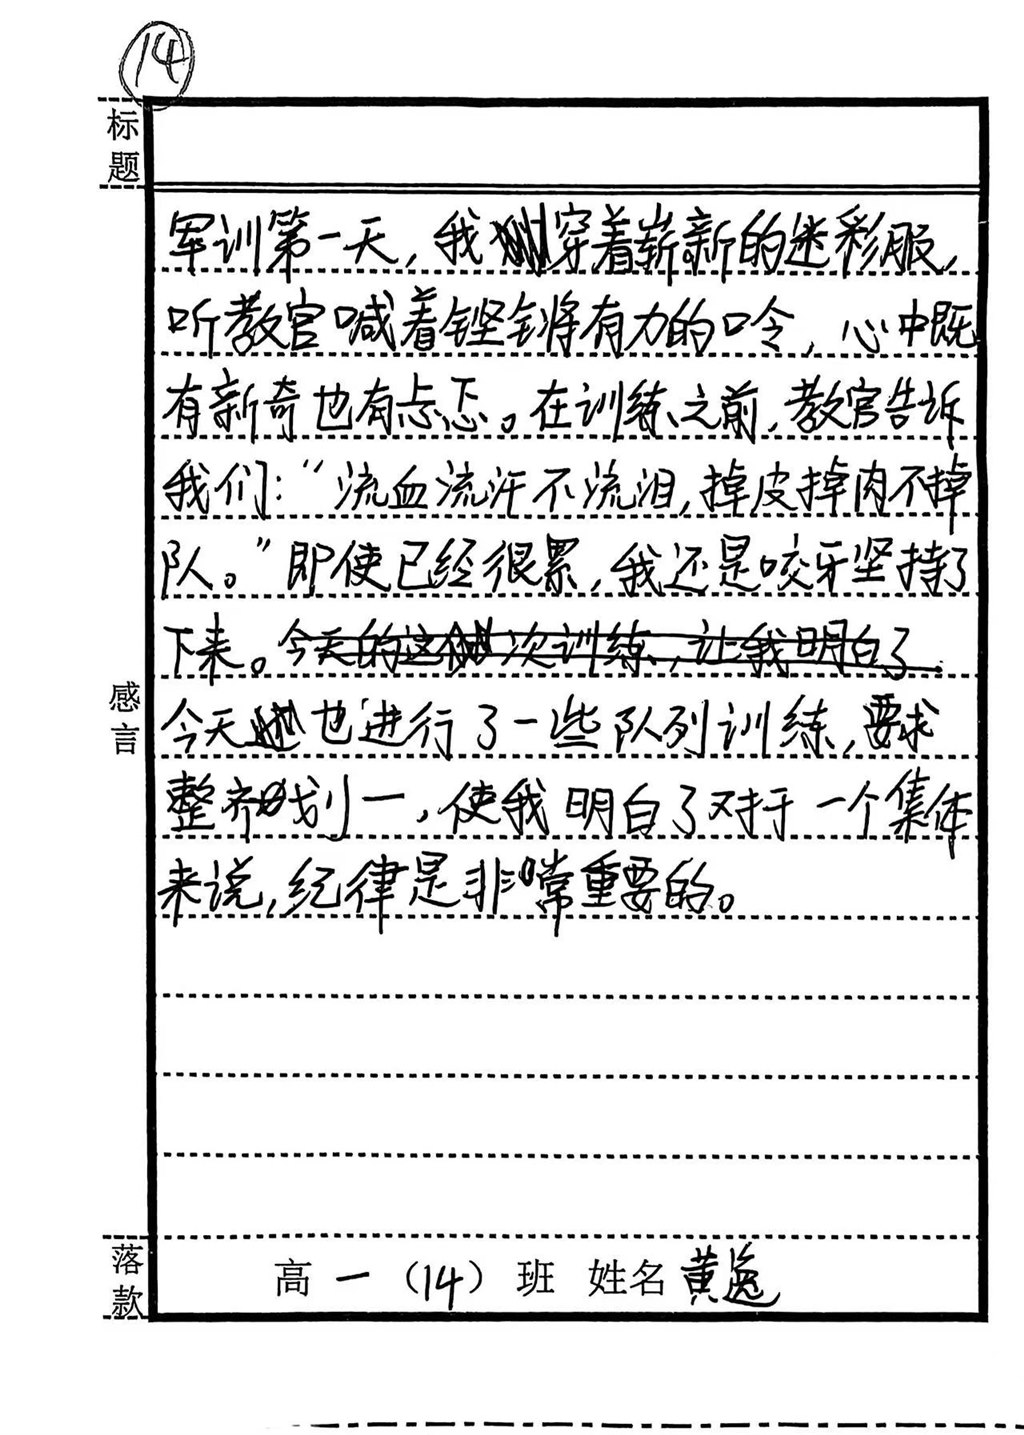 14
标题
军训第一天，我穿着崭新的迷彩服，
听教官喊着铿锵有力的口令，心中既
有新奇也有忐忑。在训练之前，教官告诉
我们：“流血流汗不流泪，掉皮掉肉不掉
队。”即使已经很累，我还是咬牙坚持了
下来。今天的这次训练，让我明白了
今天也进行了一些队列训练，要求
整齐划一，使我明白了对于一个集体
来说，纪律是非常重要的。
感言
落款
高一（14）班 姓名 黄逸